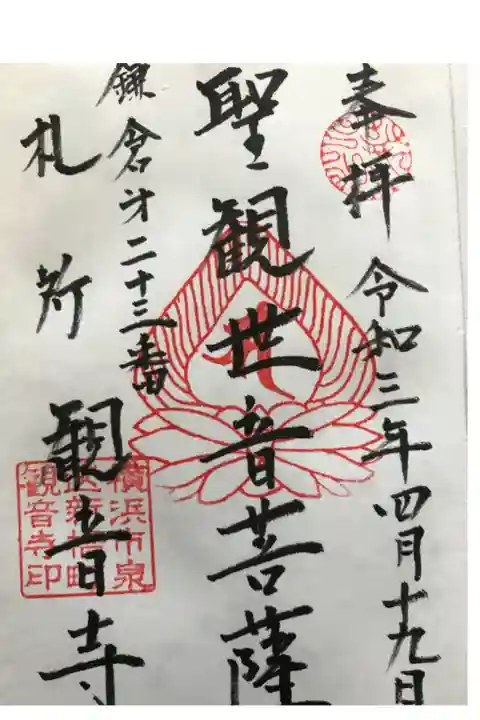 奉拝
令和三年四月十九日
聖観世音菩薩
鎌倉才二十三番
札所
観音寺
横浜市泉
区新橋町
観音寺印